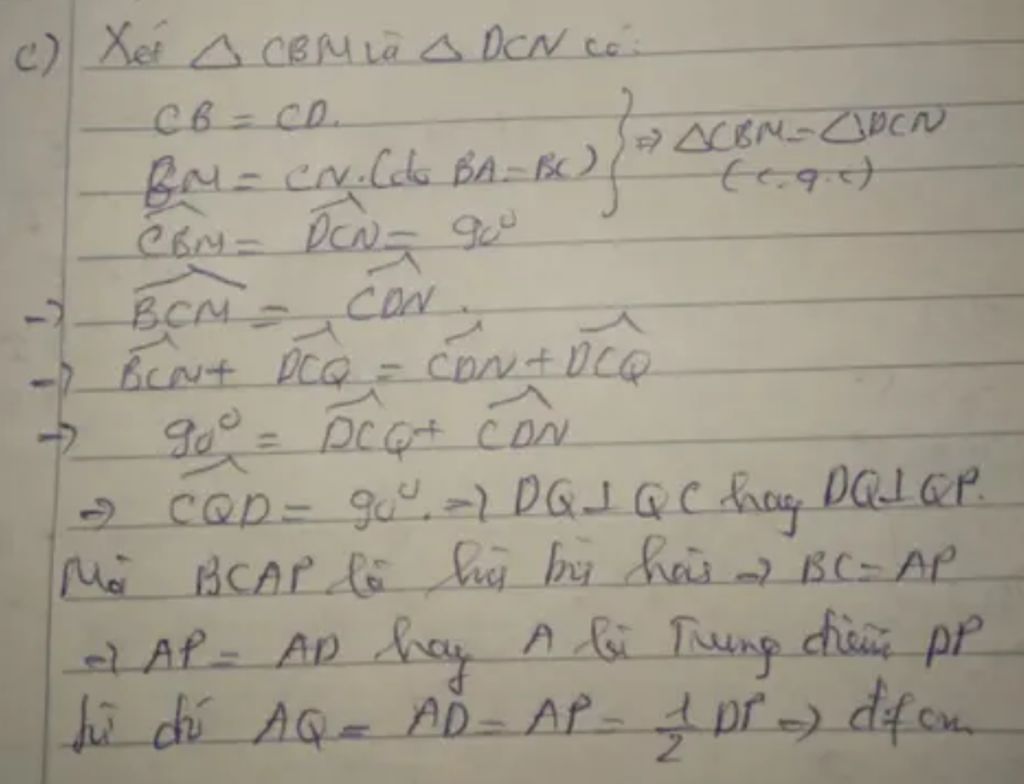 c) Xét △ CBM và △ DCN có:
CB = CD.
BM = CN. (do BA = BC) } ⇒ △CBM = △DCN
(c.g.c)
\widehat{CBM} = \widehat{DCN} = 90⁰
→ \widehat{BCM} = \widehat{CDN}.
→ \widehat{BCN} + \widehat{DCQ} = \widehat{CDN} + \widehat{DCQ}
→ 90⁰ = \widehat{DCQ} + \widehat{CDN}
⇒ \widehat{CQD} = 90⁰. → DQ ⊥ QC hay DQ ⊥ QP.
Mà BCAP là hình bình hành → BC = AP
→ AP = AD hay A là Trung điểm DP
AQ = AD = AP = 1/2 DP ⇒ đpcm